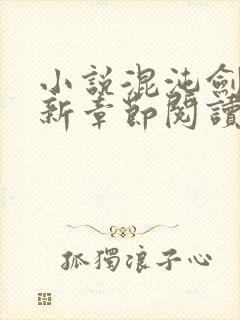 小説混沌劍
新章節閱讀
孤獨浪子心